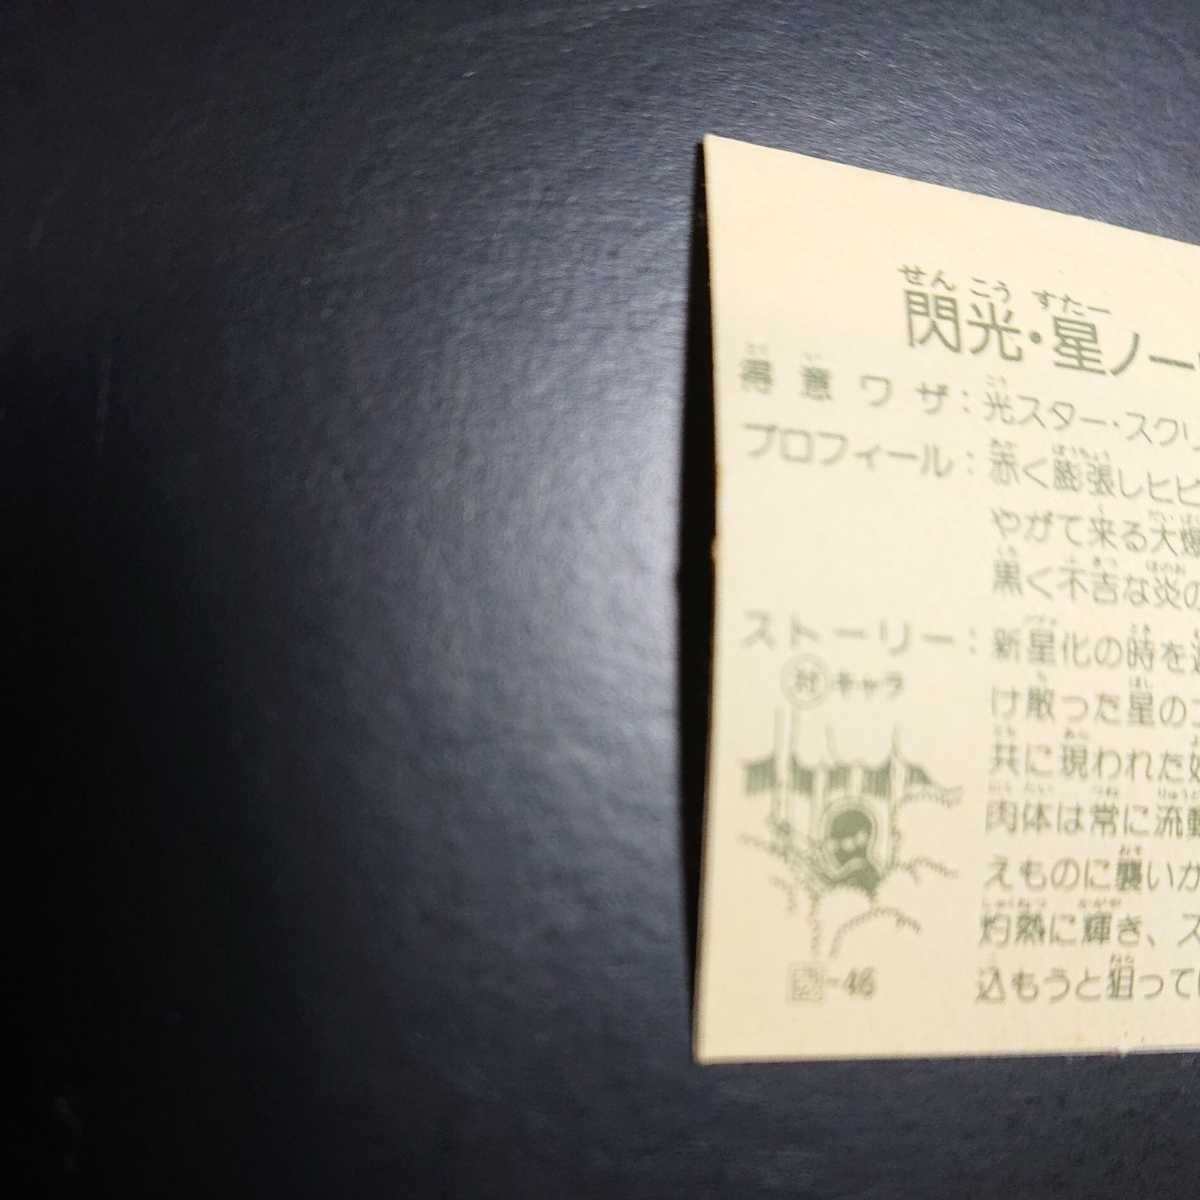 せんこう すたー
閃光・星ノー
得意ワザ：光スター・スクリ
プロフィール：赤く膨張しヒビ
やがて来る大爆
黒く不吉な炎の
ストーリー：新星化の時を
け散った星の
共に現われた
肉体は常に流動
えものに襲いか
灼熱に輝き、ス
込もうと狙って
対キャラ
-46